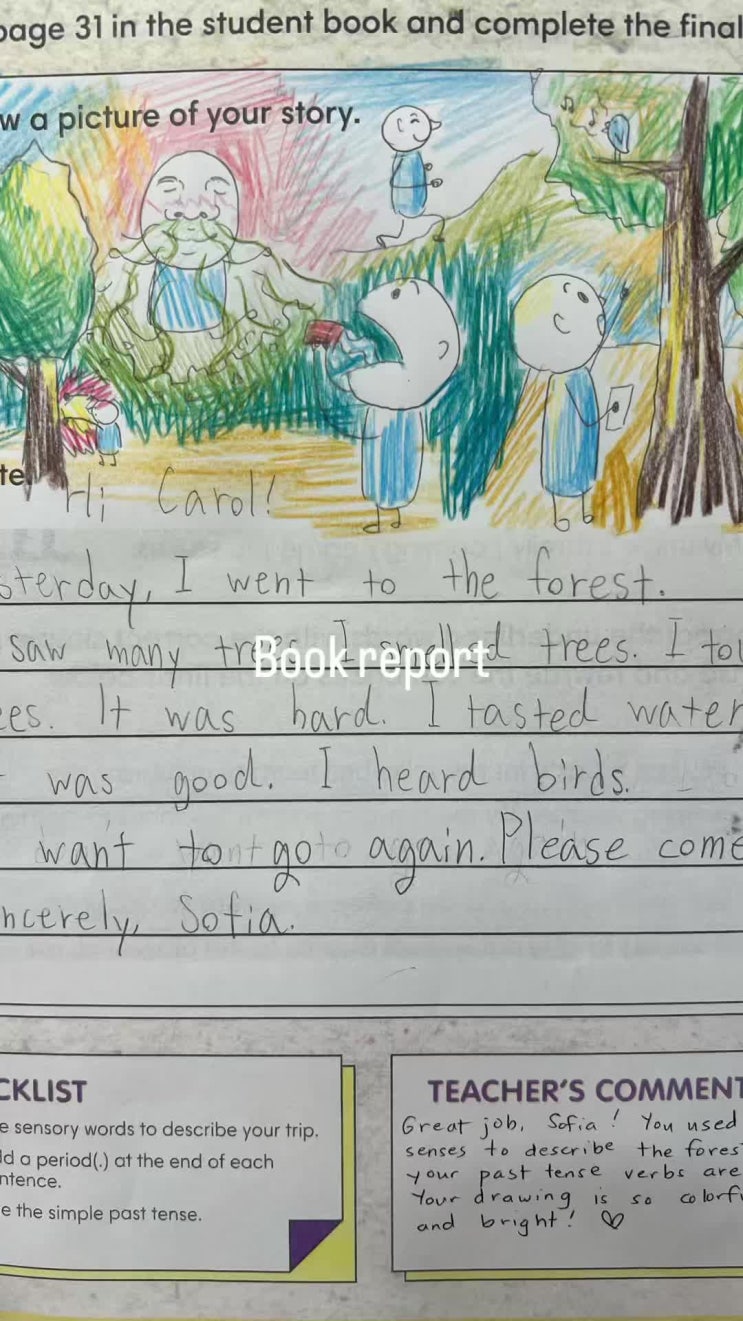 page 31 in the student book and complete the final
w a picture of your story.
te
Hi Carol!
sterday, I went to the forest.
saw many trees. I smelled trees. I tou
ees. It was hard. I tasted water
was good. I heard birds.
want to go again. Please come
ncerely, Sofia.
Book report
CKLIST
e sensory words to describe your trip.
dd a period(.) at the end of each
ntence.
e the simple past tense.
TEACHER'S COMMENT
Great job, Sofia! You used
senses to describe the fores
your past tense verbs are
Your drawing is so colorfu
and bright! ♡